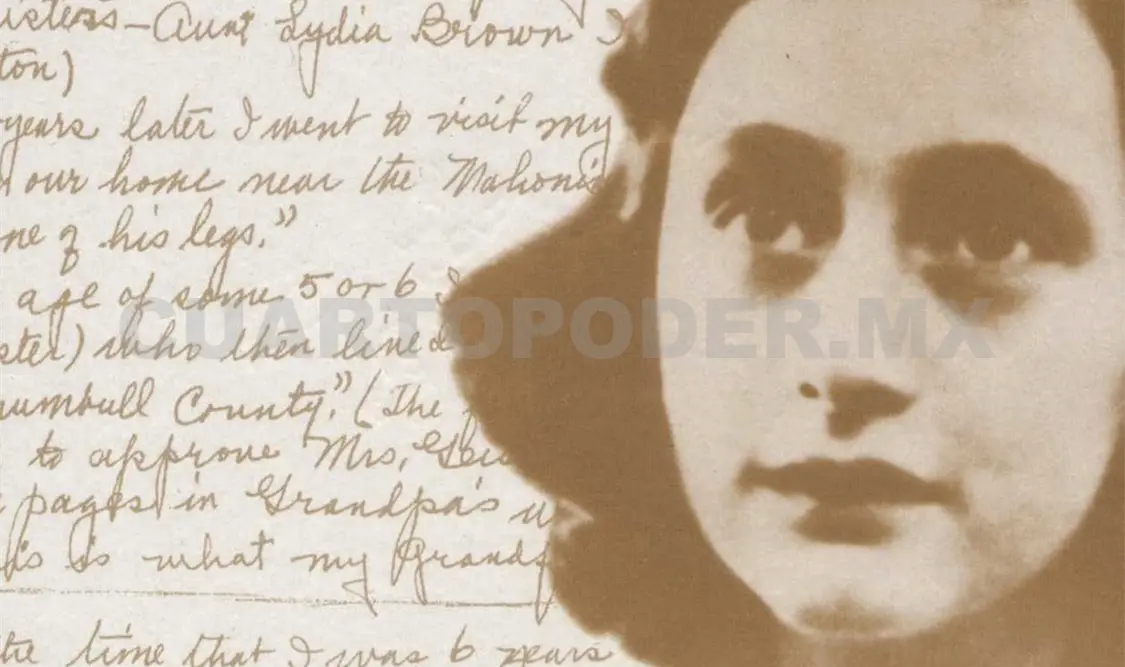 isters—Aunt Lydia Brown I
ton)
years later I went to visit my
our home near the Mahoni
ne of his legs."
age of some 5 or 6 I
ster) who then lined
CUARTOPODER.MX
umbull County." (The
to approve Mrs.
pages in Grandpa's w
is is what my Grandf
the time that I was 6 years